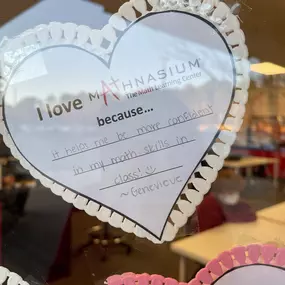 I love MATHNASIUM
The Math Learning Center
because...
It helps me be more confident
in my math skills in
class! ☺
~Genevieve